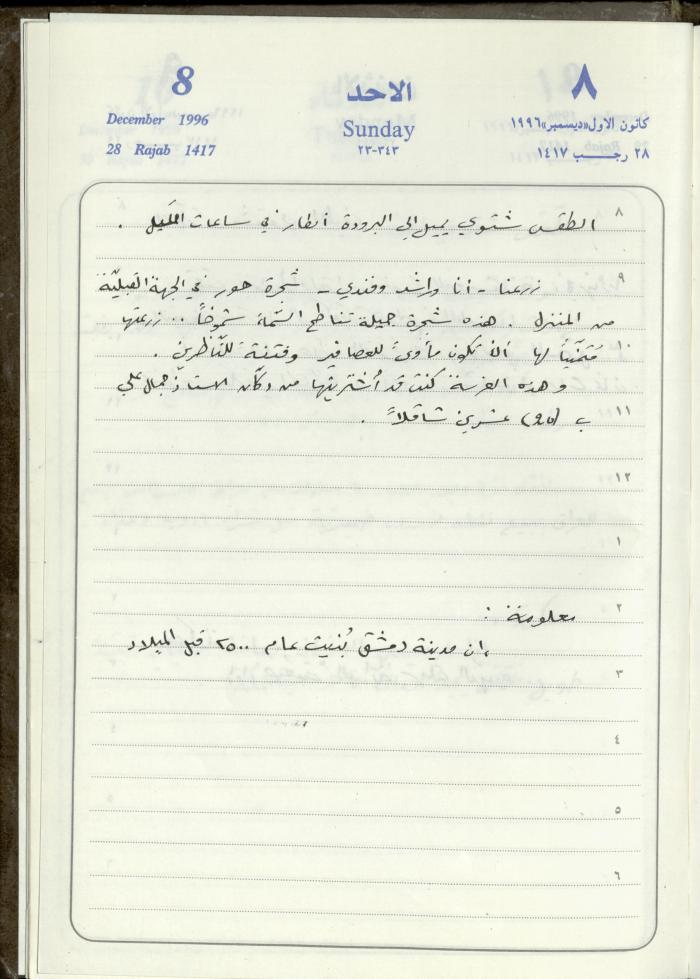 8
December 1996
28 Rajab 1417
الاحد
Sunday
٢٣-٣٤٣
٨
كانون الاول «ديسمبر» ١٩٩٦
٢٨ رجب ١٤١٧
٨ الطقس شتوي يميل إلى البرودة أمطار في ساعات الليل .
٩ زرعنا - أنا وراشد وفندي - شجرة حور في الجهة القبليّة
من المنزل . هذه شجرة جميلة تناطح السّماء شموخاً .. زرعتها
١٠ مُتمنّياً لها أن تكون مأوىً للعصافير وفتنةً للنّاظرين .
وهذه الغرسة كنت قد اُشتريتها من دكّان الاستاذ جمال علي
١١ ب (٢٥) عشرين شاقلاً .
١٢
١
٢ معلومة :
ان مدينة دمشق بُنيت عام ٢٥٠٠ قبل الميلاد
٣
٤
٥
٦